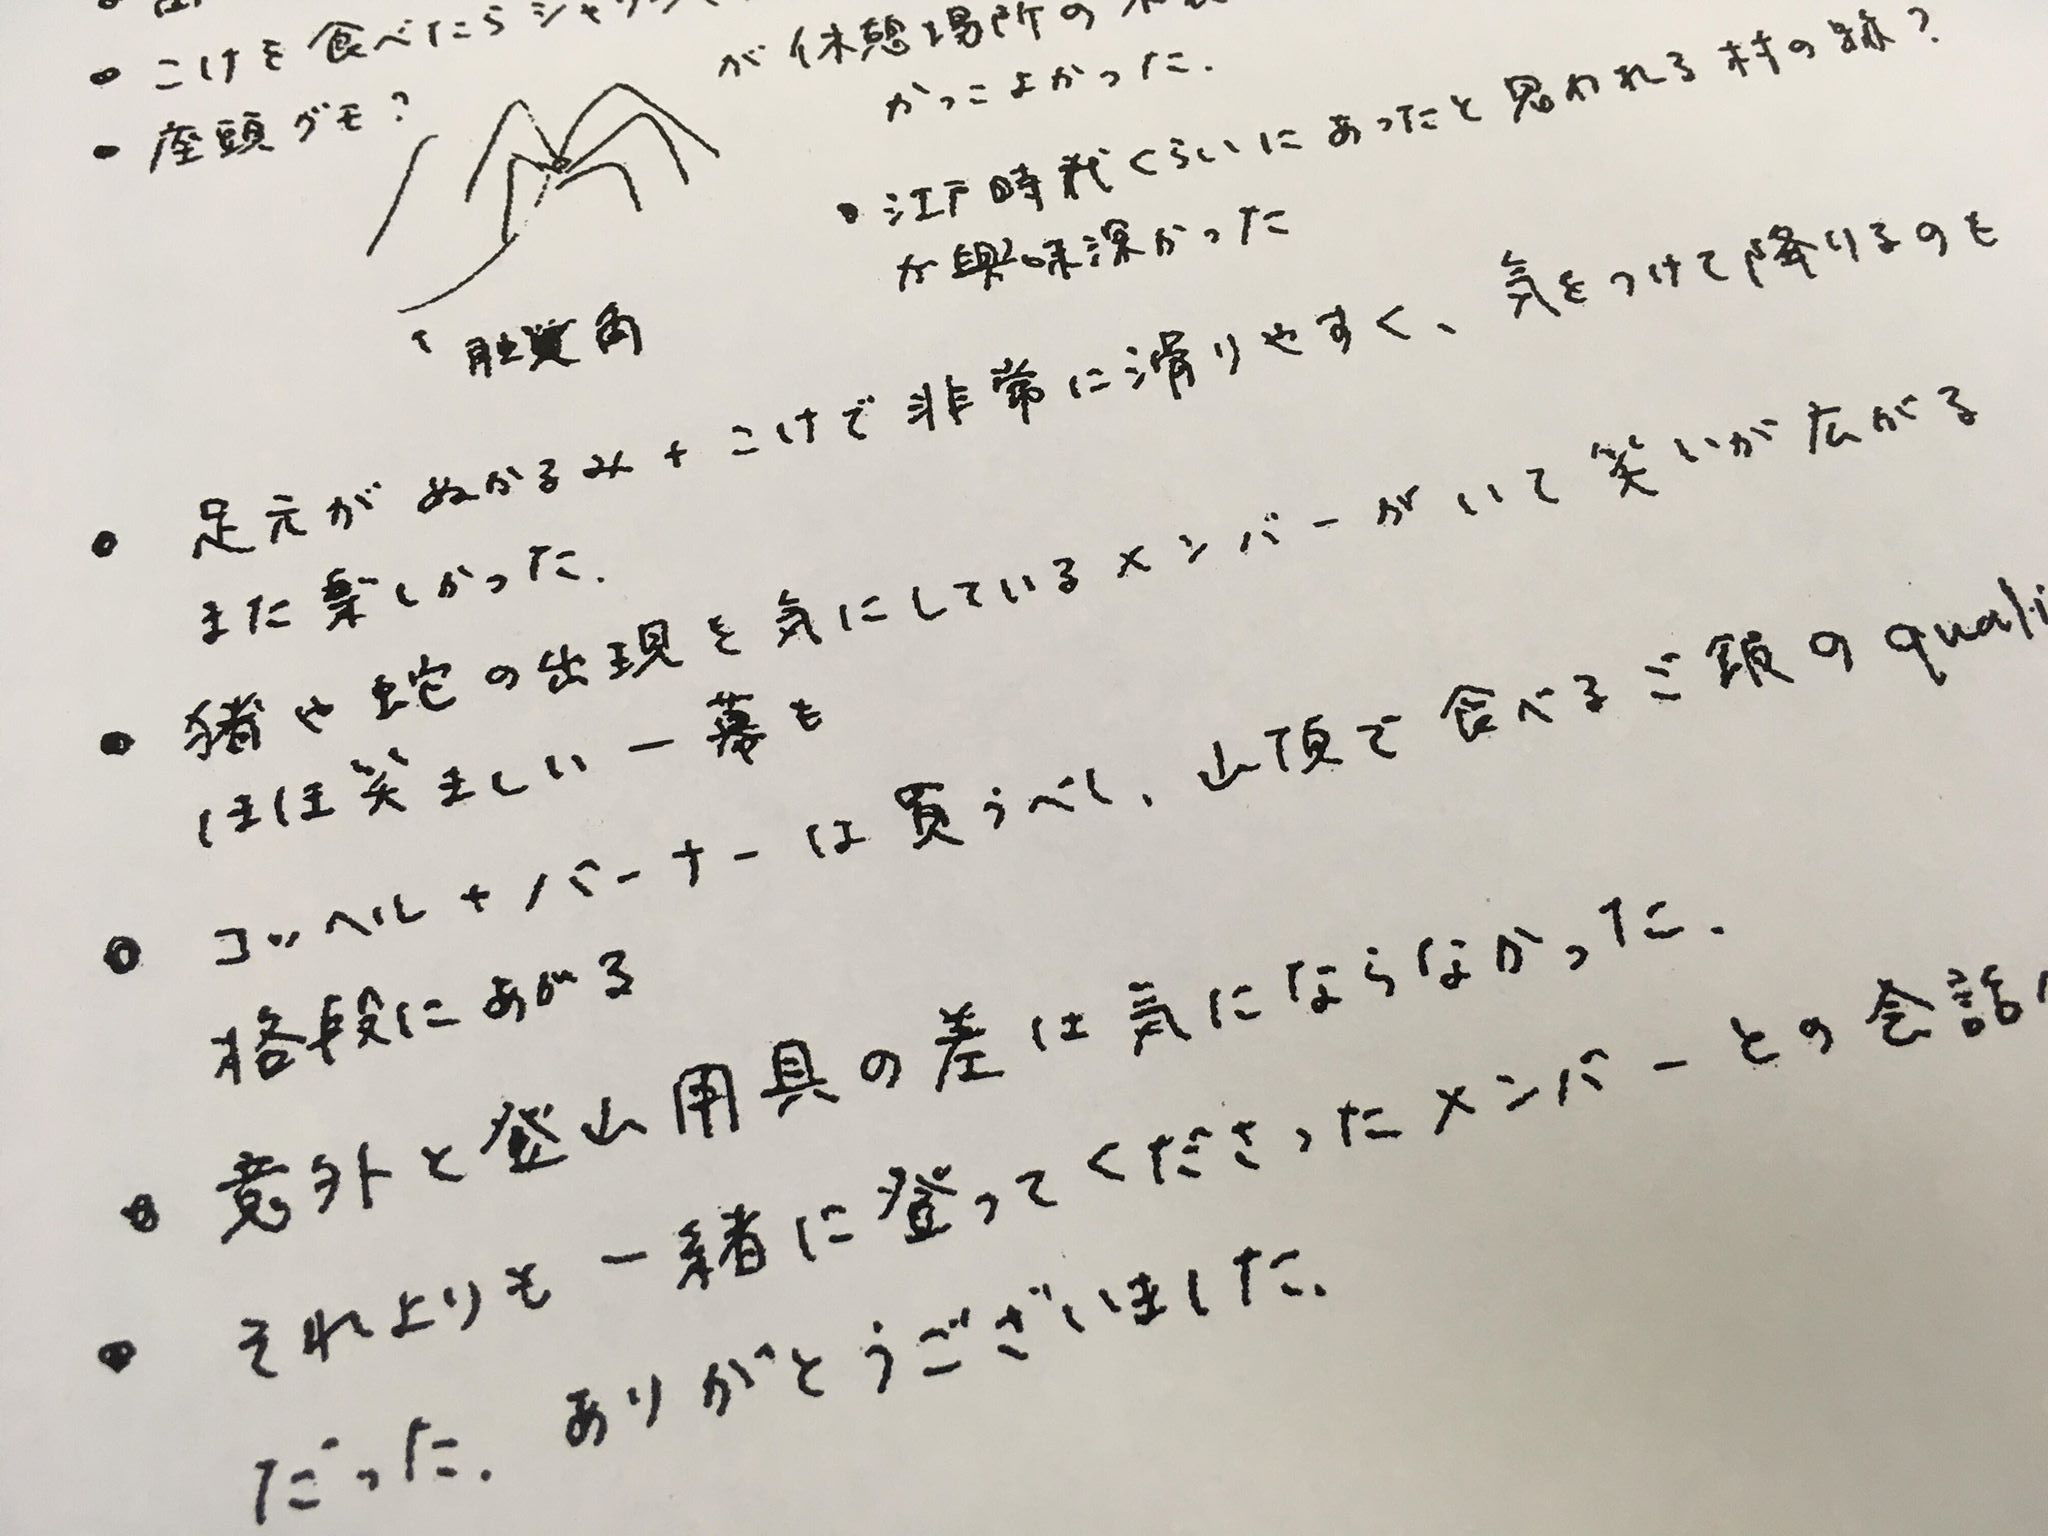 • こけを食べたらシャリ
• 座頭グモ?
が休憩場所の
かっこよかった.
• 江戸時代くらいにあったと思われる村の跡?
が興味深かった
触角
• 足元がぬかるみ+こけで非常に滑りやすく、気をつけて降りるのも
また楽しかった.
• 猪や蛇の出現を気にしているメンバーがいて笑いが広がる
ほほ笑ましい一幕も
• コッヘル+バーナーは買うべし、山頂で食べるご飯のquali
格段にあがる
• 意外と登山用具の差は気にならなかった.
• それよりも一緒に登ってくださったメンバーとの会話
だった. ありがとうございました.